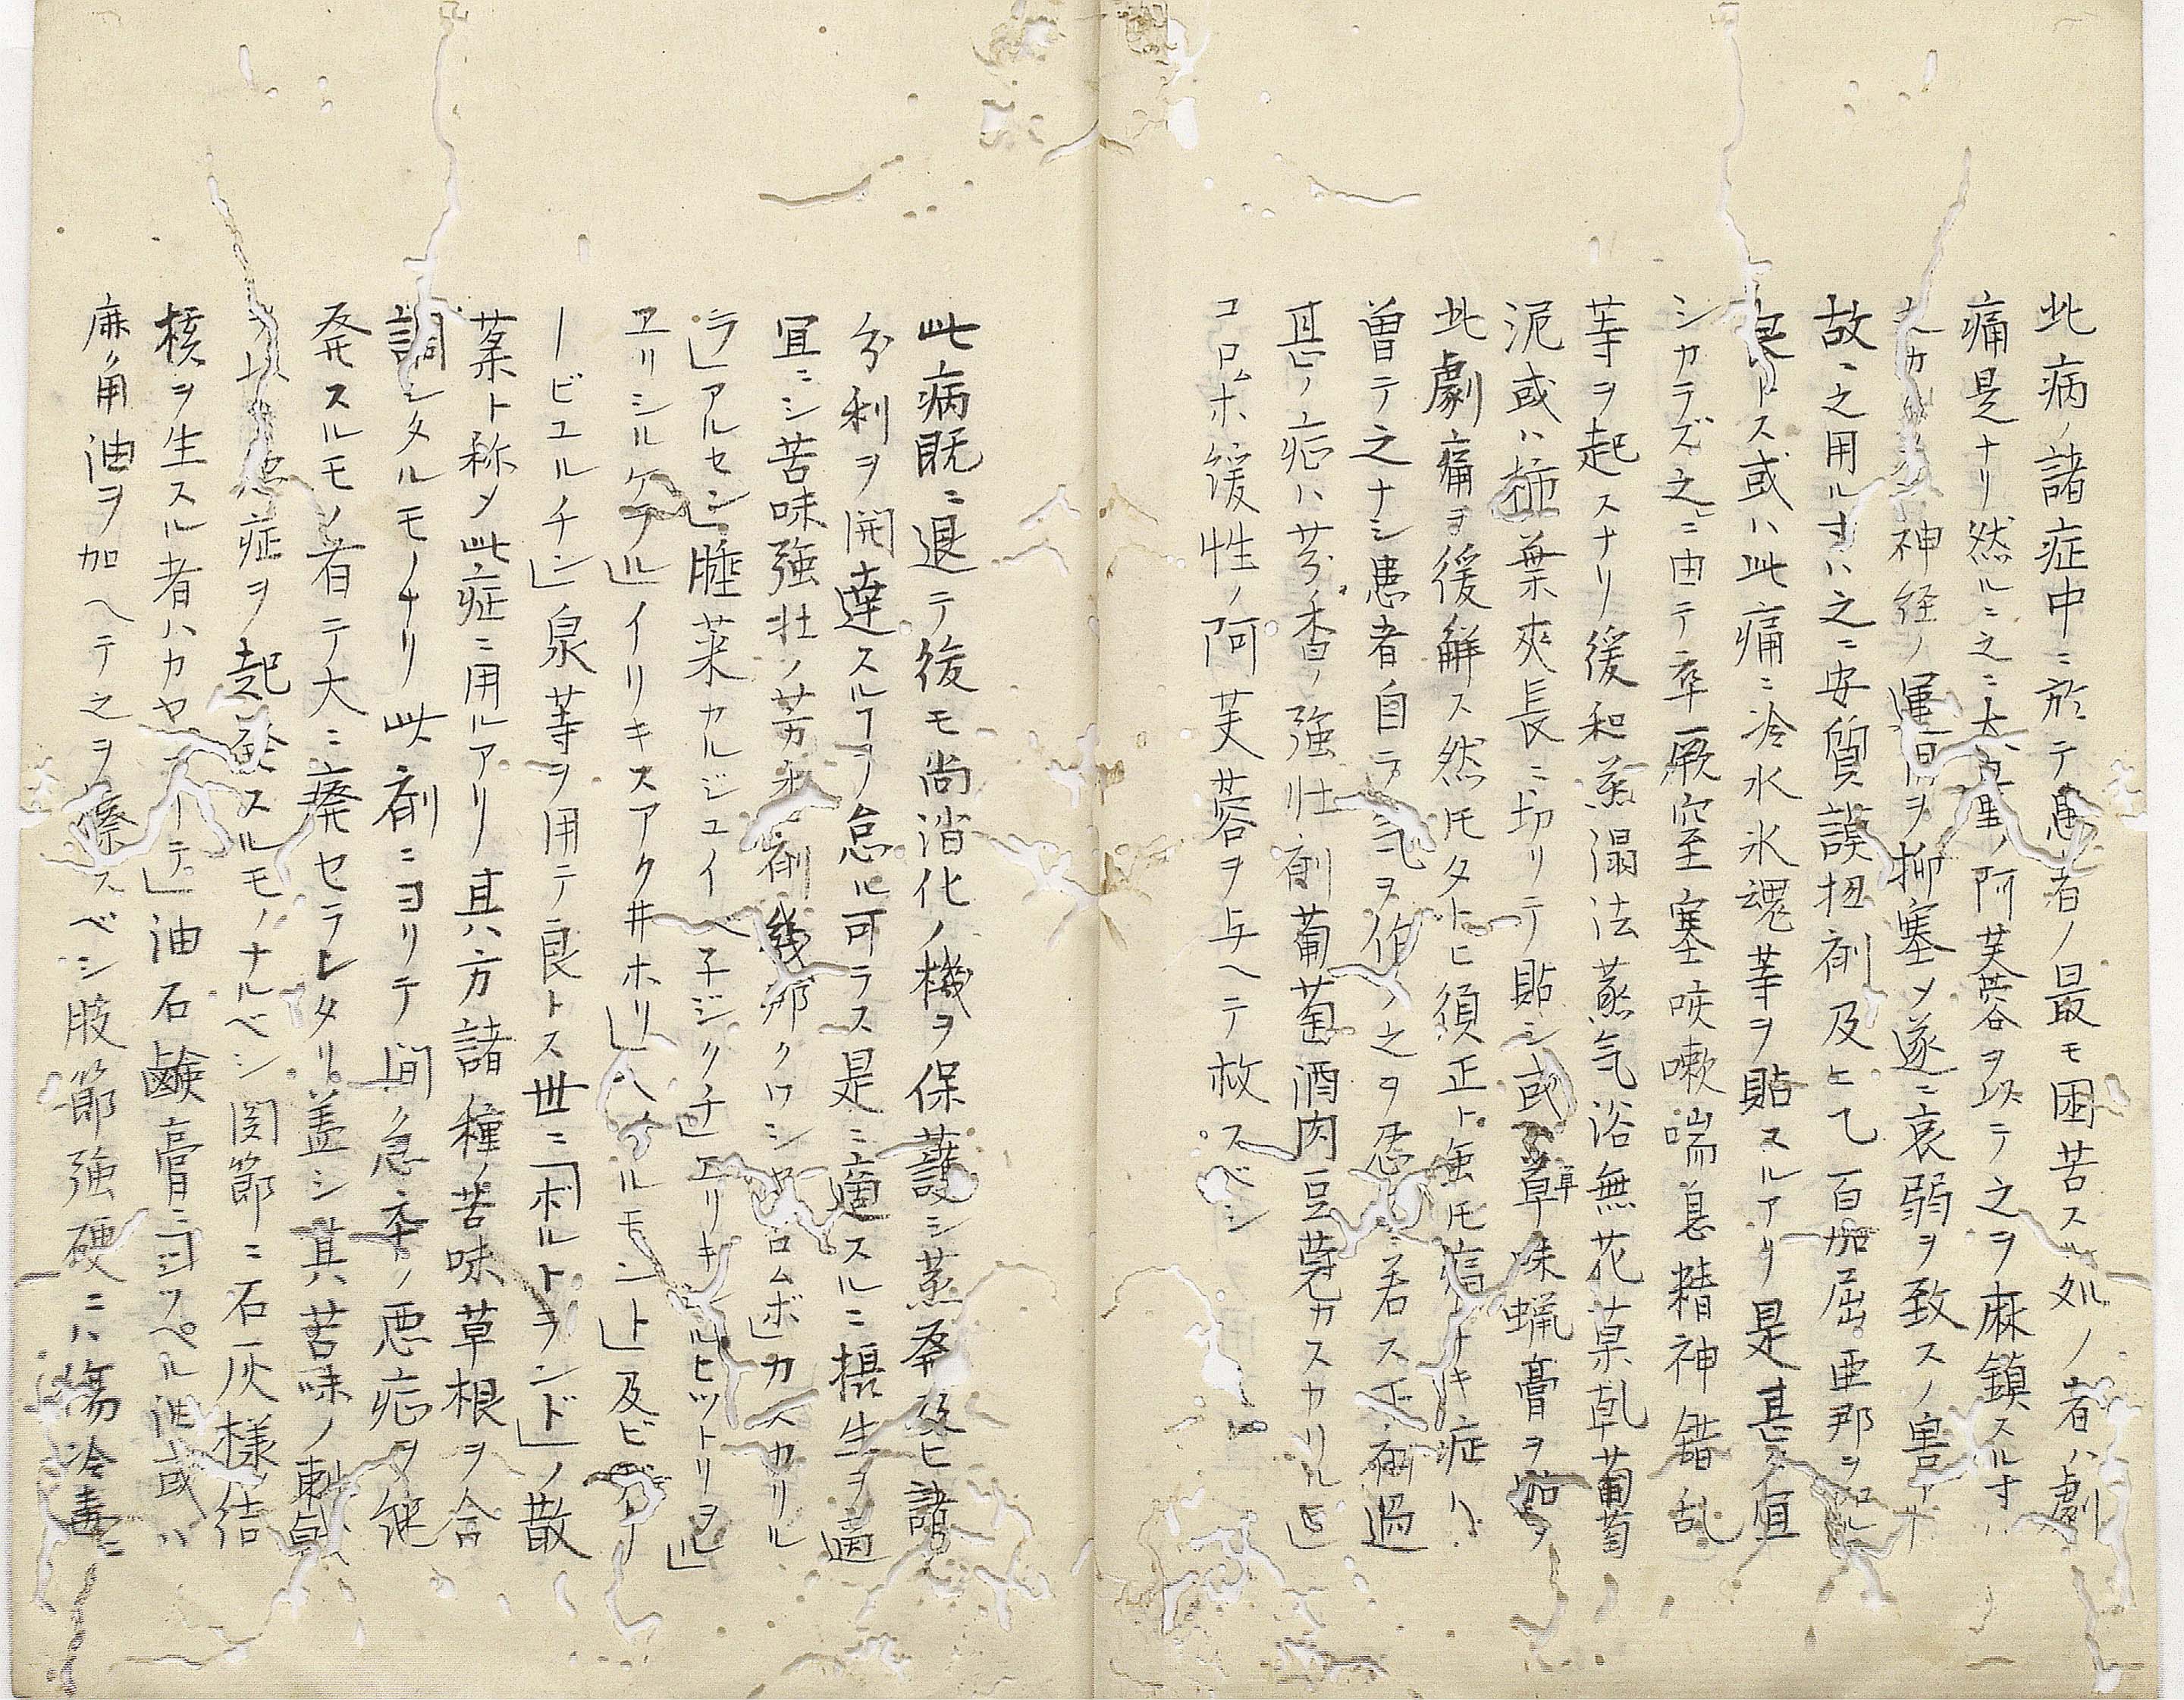 此病ノ諸症中ニ於テ患者ノ最モ困苦スル処ノ者ハ劇
痛是ナリ然ルニ之ニ大量ノ阿芙蓉ヲ以テ之ヲ麻鎮スルヿハ
神経ノ運営ヲ抑塞シテ遂ニ衰弱ヲ致スノ害アリ
故ニ之用ルヿハ之ニ安質誤扭剤及ヒ乇百加屈亜那ヲ
良トス或ハ此痛ニ冷水氷魂䓁ヲ貼スルアリ是甚タ宜
シカラズ之ニ由テ卒厥窒塞咳嗽喘息精神錯乱
䓁ヲ起スナリ緩和蒸溻法蒸気浴無花菓乹葡萄
泥或ハ葉爽長ニ切リテ貼シ或草味蝋膏ヲ
此劇痛ヲ緩解ス然𪜈タトヒ須正ト虽𪜈痛ナキ症ハ
曽テ之ナシ患者自ラ気ヲ作ノ之ヲ忍若ス不剤過
甚ノ症ハ芬香ノ強壮剤葡萄酒肉豆蔲カスカリルレ
コロムホ緩性ノ阿芙蓉ヲ与ヘテ救スベシ
此病既ニ退テ後モ尚消化ノ機ヲ保護シ蒸発及ヒ諸
分利ヲ開達スルヿヲ怠ル可ラス是ニ適スルニ摂生ヲ適
宜ニシ苦味強壮ノ芳香剤幾那クワシヤコロムボ」カスカリル
ラ」アルセン」睡菜カルジユイベ子ジクチ」エリキシルヒツトリヲレ」
ヱリシルケアル」イリキスアクキホリ」ヘイルモント」及ビ
ービユルチン」泉䓁ヲ用テ良トス世ニ「ポルトランド」ノ散
薬ト称メ此症ニ用ルアリ其方諸種ノ苦味草根ヲ合
調シタルモノナリ此剤ニヨリテ間々急卒ノ悪症ヲ継
発スルモノ有テ大ニ廃セラレタリ盖シ其苦味ノ刺戟
症ヲ起発スルモノナルベシ関節ニ石灰様ノ結
核ヲ生スル者ハカヤプーテ」油石鹸膏ニヨジツペル油或ハ
麻角油ヲ加ヘテ之ヲ擦スベシ肢節強硬ニハ傷冷毒ニ